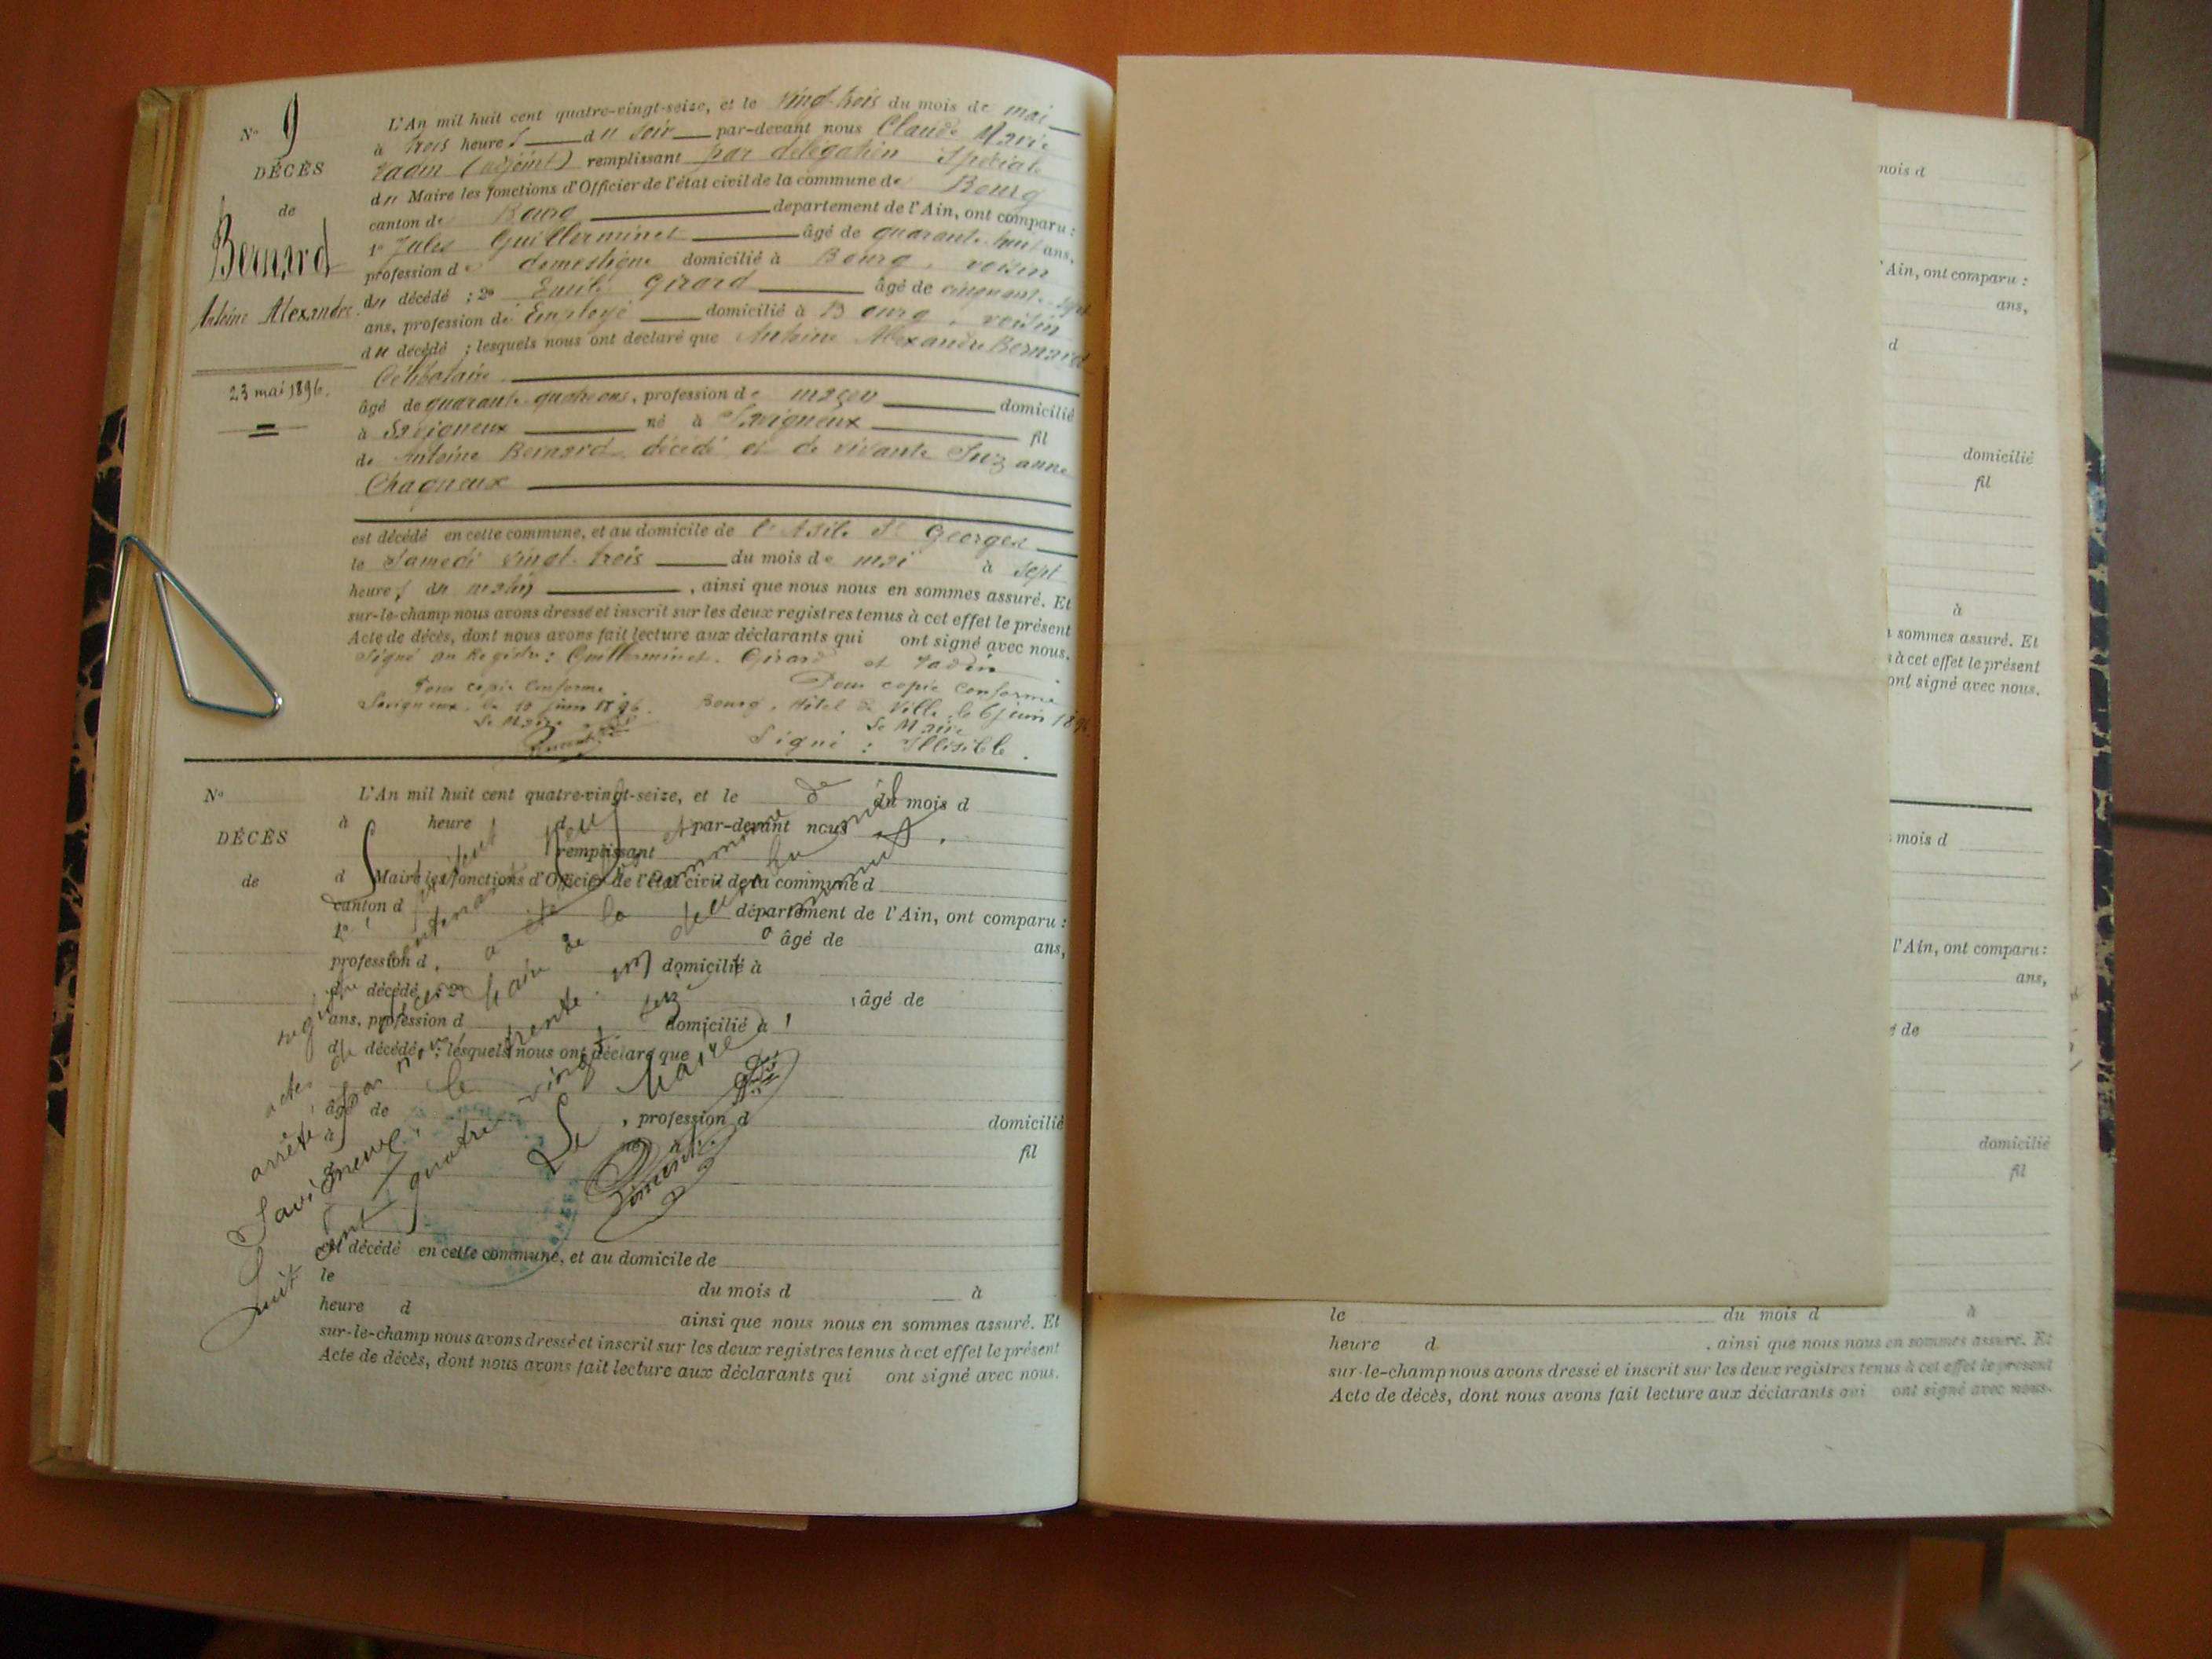 N° 9
DÉCÈS
de
Bernard
Antoine Alexandre
23 mai 1896.
L'An mil huit cent quatre-vingt-seize, et le vingt-trois du mois de mai
à trois heures du soir par-devant nous Claude Marie
(adjoint) remplissant par délégation Spéciale
du Maire les fonctions d'Officier de l'état civil de la commune de Bourg
canton de Bourg département de l'Ain, ont comparu :
1° Jules Guillerminet âgé de quarante-huit ans,
profession de domestique domicilié à Bourg, voisin
du décédé ; 2° Emile Girard âgé de cinquante-sept
ans, profession de Employé domicilié à Bourg, voisin
du décédé ; lesquels nous ont déclaré que Antoine Alexandre Bernard
Célibataire
âgé de quarante-quatre ans, profession de maçon domicilié
à Savigneux né à Savigneux fil
de Antoine Bernard décédé et de vivante Suzanne
Chagneux
est décédé en cette commune, et au domicile de l'Asile St Georges
le Samedi vingt-trois du mois de mai à sept
heures du matin, ainsi que nous nous en sommes assuré. Et
sur-le-champ nous avons dressé et inscrit sur les deux registres tenus à cet effet le présent
Acte de décès, dont nous avons fait lecture aux déclarants qui ont signé avec nous.
Signé au Registre : Guillerminet. Girard et
Pour copie Conforme
Savigneux, le 10 juin 1896.
Le Maire
Pour copie Conforme
Bourg, Hôtel de Ville, le 6 juin 1896
Le Maire
Signé : Illisible.
N°
DÉCÈS
de
L'An mil huit cent quatre-vingt-seize, et le du mois d
à heure d par-devant nous
remplissant
d Maire les fonctions d'Officier de l'état civil de la commune d
canton d département de l'Ain, ont comparu :
1° âgé de ans,
profession d domicilié à
d décédé ; 2° âgé de
ans, profession d domicilié à
d décédé ; lesquels nous ont déclaré que
âgé de , profession d domicilié
à né à fil
est décédé en cette commune, et au domicile de
le du mois d à
heure d ainsi que nous nous en sommes assuré. Et
sur-le-champ nous avons dressé et inscrit sur les deux registres tenus à cet effet le présent
Acte de décès, dont nous avons fait lecture aux déclarants qui ont signé avec nous.
registre
actes de la commune
arrêté par nous Maire de
Savigneux, le trente
huit cent quatre vingt seize
Le Maire
mois d
Ain, ont comparu :
ans,
d
domicilié
fil
à
sommes assuré. Et
à cet effet le présent
ont signé avec nous.
mois d
l'Ain, ont comparu :
ans,
de
domicilié
fil
le du mois d à
heure d , ainsi que nous nous en sommes assuré. Et
sur-le-champ nous avons dressé et inscrit sur les deux registres tenus à cet effet le présent
Acte de décès, dont nous avons fait lecture aux déclarants qui ont signé avec nous.